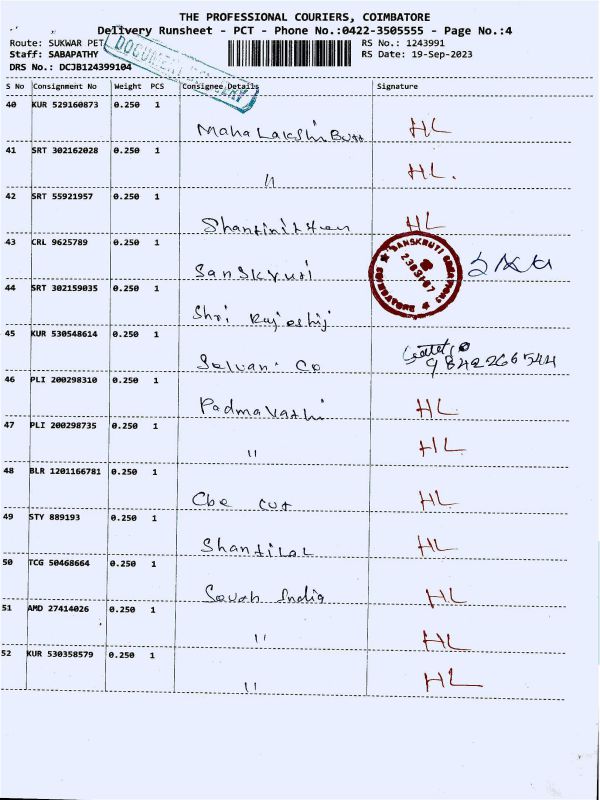 THE PROFESSIONAL COURIERS, COIMBATORE
Delivery Runsheet - PCT - Phone No.:0422-3505555 - Page No.:4
Route: SUKWAR PET
RS No.: 1243991
Staff: SABAPATHY
RS Date: 19-Sep-2023
DRS No.: DCJB124399104
DOCUMENT DELIVERY
S No Consignment No Weight PCS Consignee Details Signature
40 KUR 529160873 0.250 1
Maha Lakshi Butt HL
41 SRT 302162028 0.250 1
" HL.
42 SRT 55921957 0.250 1
HL
43 CRL 9625789 0.250 1
Sanskruti
SANSKRUTI CREATION
44 SRT 302159035 0.250 1
Shri Rajeshij
45 KUR 530548614 0.250 1
Selvani Co 9842266544
46 PLI 200298310 0.250 1
Padmavathi HL
47 PLI 200298735 0.250 1
" HL
48 BLR 1201166781 0.250 1
Cbe cut HL
49 STY 889193 0.250 1
Shantilal HL
50 TCG 50468664 0.250 1
South India HL
51 AMD 27414026 0.250 1
" HL
52 KUR 530358579 0.250 1
" HL